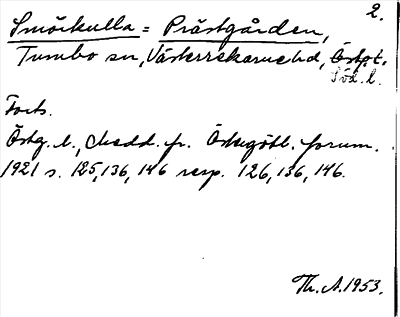 2.
Smörkulla = Prästgården,
Tumbo sn, Västerrekarne hd, Östgt.
Söd. l.
Forts.
Östg. l., Medd. fr. Östergötl. fornm.
1921 s. 125, 136, 146 resp. 126, 136, 146.
Th. A. 1953.